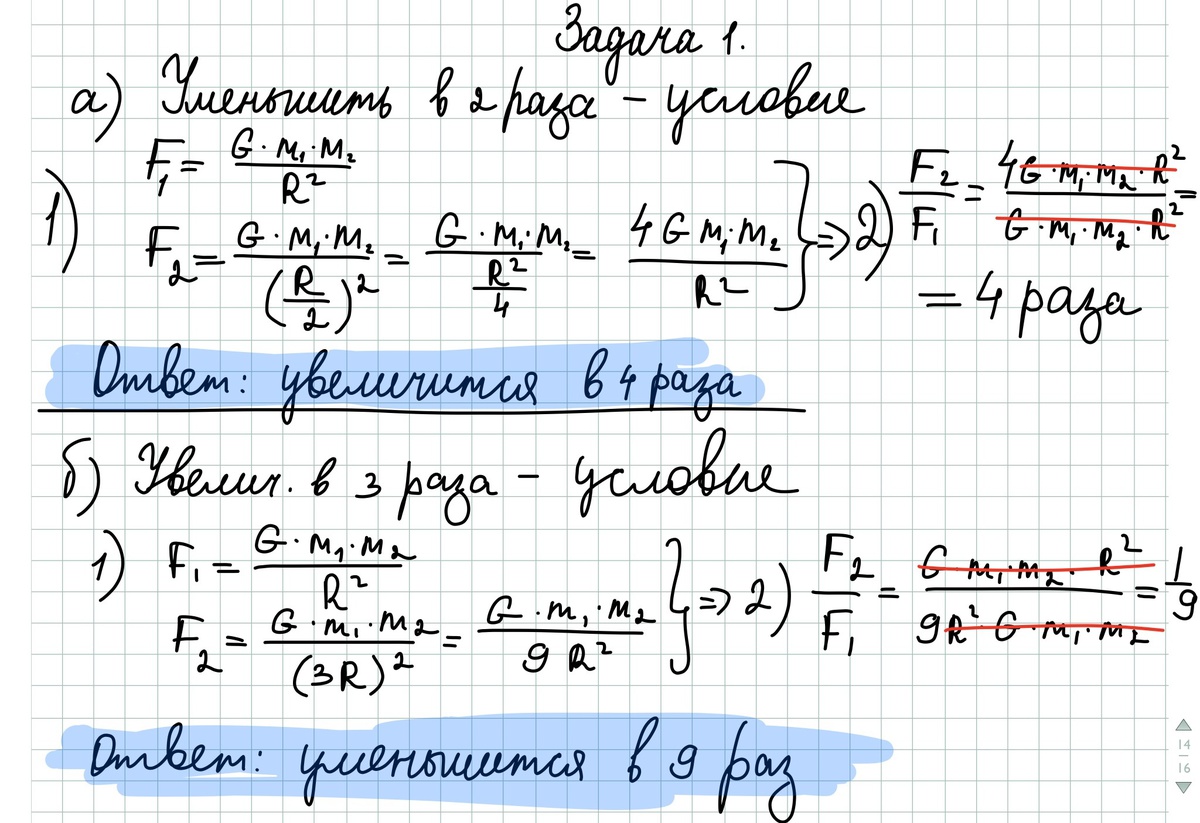 Задача 1.
а) Уменьшить в 2 раза – условие
1) F₁ = G·m₁·m₂ / R²
F₂ = G·m₁·m₂ / (R/2)² = G·m₁·m₂ / (R²/4) = 4G m₁·m₂ / R² } => 2) F₂/F₁ = 4G·m₁·m₂·R² / G·m₁·m₂·R² =
= 4 раза
Ответ: увеличится в 4 раза
б) Увелич. в 3 раза – условие
1) F₁ = G·m₁·m₂ / R²
F₂ = G·m₁·m₂ / (3R)² = G·m₁·m₂ / 9R² } => 2) F₂/F₁ = G m₁·m₂·R² / 9R²·G·m₁·m₂ = 1/9
Ответ: уменьшится в 9 раз
14
16